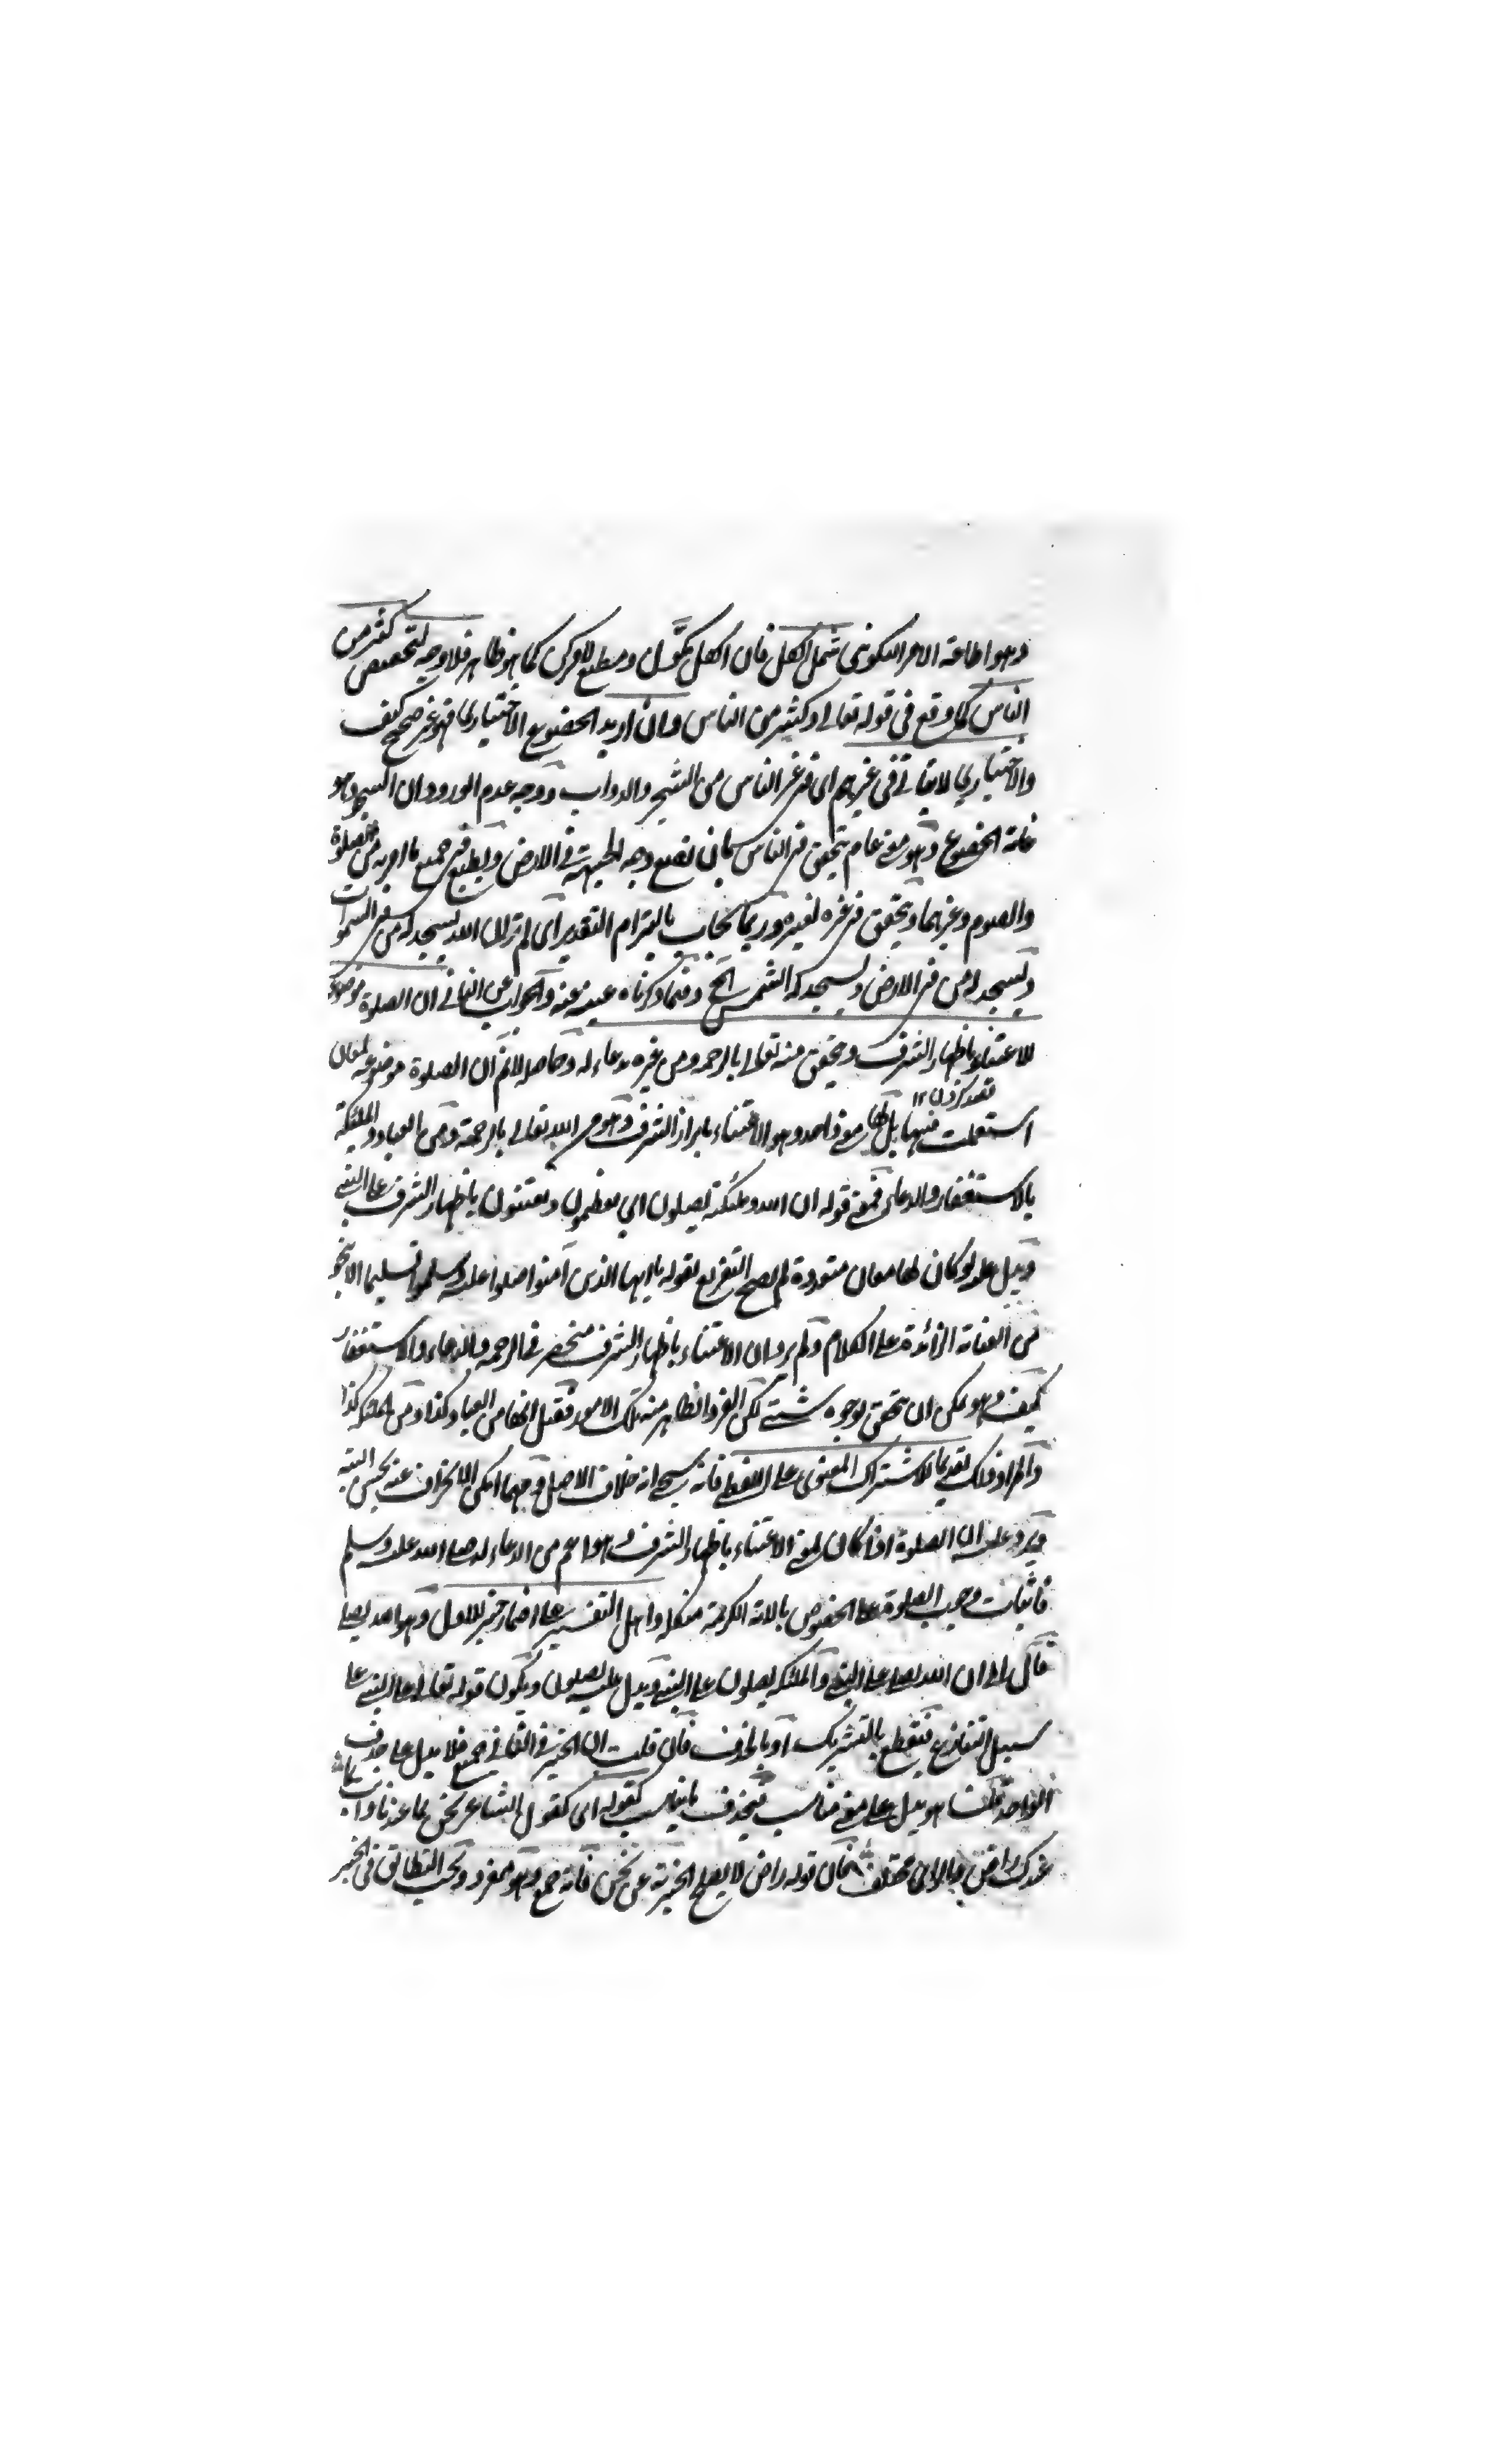 وهو اطاعة الامر التكوينى شمل الكل فان الكل مكوَّن ومطيع لامر كن كما هو ظاهر فلا وجه لتخصيص كثير من
الناس كما وقع فى قوله تعالى وكثير من الناس وان اريد الخضوع الاختيارى فهو غير صحيح كيف
والاختيارى لا يتاتى فى غيرهم اى فى غير الناس من الشجر والدواب ووجه عدم الورود ان السجود هو
غاية الخضوع وهو معنى عام يتحقق فى الناس بان يضع وجه الجبهة فى الارض ويطيع فى جميع ما امر به من الصلوة
والصوم وغيرهما ويتحقق فى غيره لغيره وربما يجاب بالتزام التقدير اى الم تر ان الله يسجد له من فى السموات
ويسجد له من فى الارض ويسجد له الشمس الخ وفيما ذكرناه غنية عنه والجواب عن الثانى ان الصلوة موضوعة
للاعتناء باظهار الشرف ويتحقق منه تعالى بالرحمة ومن غيره بدعاء له وحاصله لا نم ان الصلوة موضوعة لمعان
استعملت فيها بل لها معنى واحد وهو الاعتناء بابراز الشرف وهو من الله تعالى بالرحمة ومن العباد والملئكة
بالاستغفار والدعاء فمعنى قوله ان الله وملئكته يصلون اى يعظمون ويعتنون باظهار الشرف على النبى
ويدل عليه لو كان لها معان متعددة لم يصح التفريع بقوله يا ايها الذين آمنوا صلوا عليه وسلموا تسليما الا بنحو
من العناية الزائدة على الكلام ولم يرد ان الاعتناء باظهار الشرف منحصر فى الرحمة والدعاء والاستغفار
كيف وهو يمكن ان يتحقق بوجوه شتى لكن الفرد الظاهر منه تلك الامور فقيل انها من العباد كذا ومن الملئكة كذا
والمراد ذلك تقديما للاشتراك المعنوى على اللفظى فانه خلاف الاصل ومهما امكن الانحراف عنه يحسن البتة
ويرد عليه ان الصلوة اذا كان بمعنى الاعتناء باظهار الشرف وهو اعم من الدعاء له صلى الله عليه وسلم
فاثبات وجوب الصلوة على الخصوص بالاية الكريمة مشكل واهل التفسير على اضمار خبر للاول وهو الله يصلى
قال اى ان الله يصلى على النبى والملئكة يصلون على النبى ويدل عليه يصلون ويكون قوله تعالى على النبى على
سبيل التنازع فيقطع بالتشريك او بالحذف فان قلت ان الخبر فى الثانى جمع فلا يدل على حذف
الواحد قلنا هو يدل على معنى مناسب فيحذف ما يناسب كقوله اى كقول الشاعر نحن بما عندنا وانت بما
عندك راض والراى مختلف فان قوله راض لا يصلح الخبرية عن نحن فانه جمع وهو مفرد ويجب التطابق فى الخبر